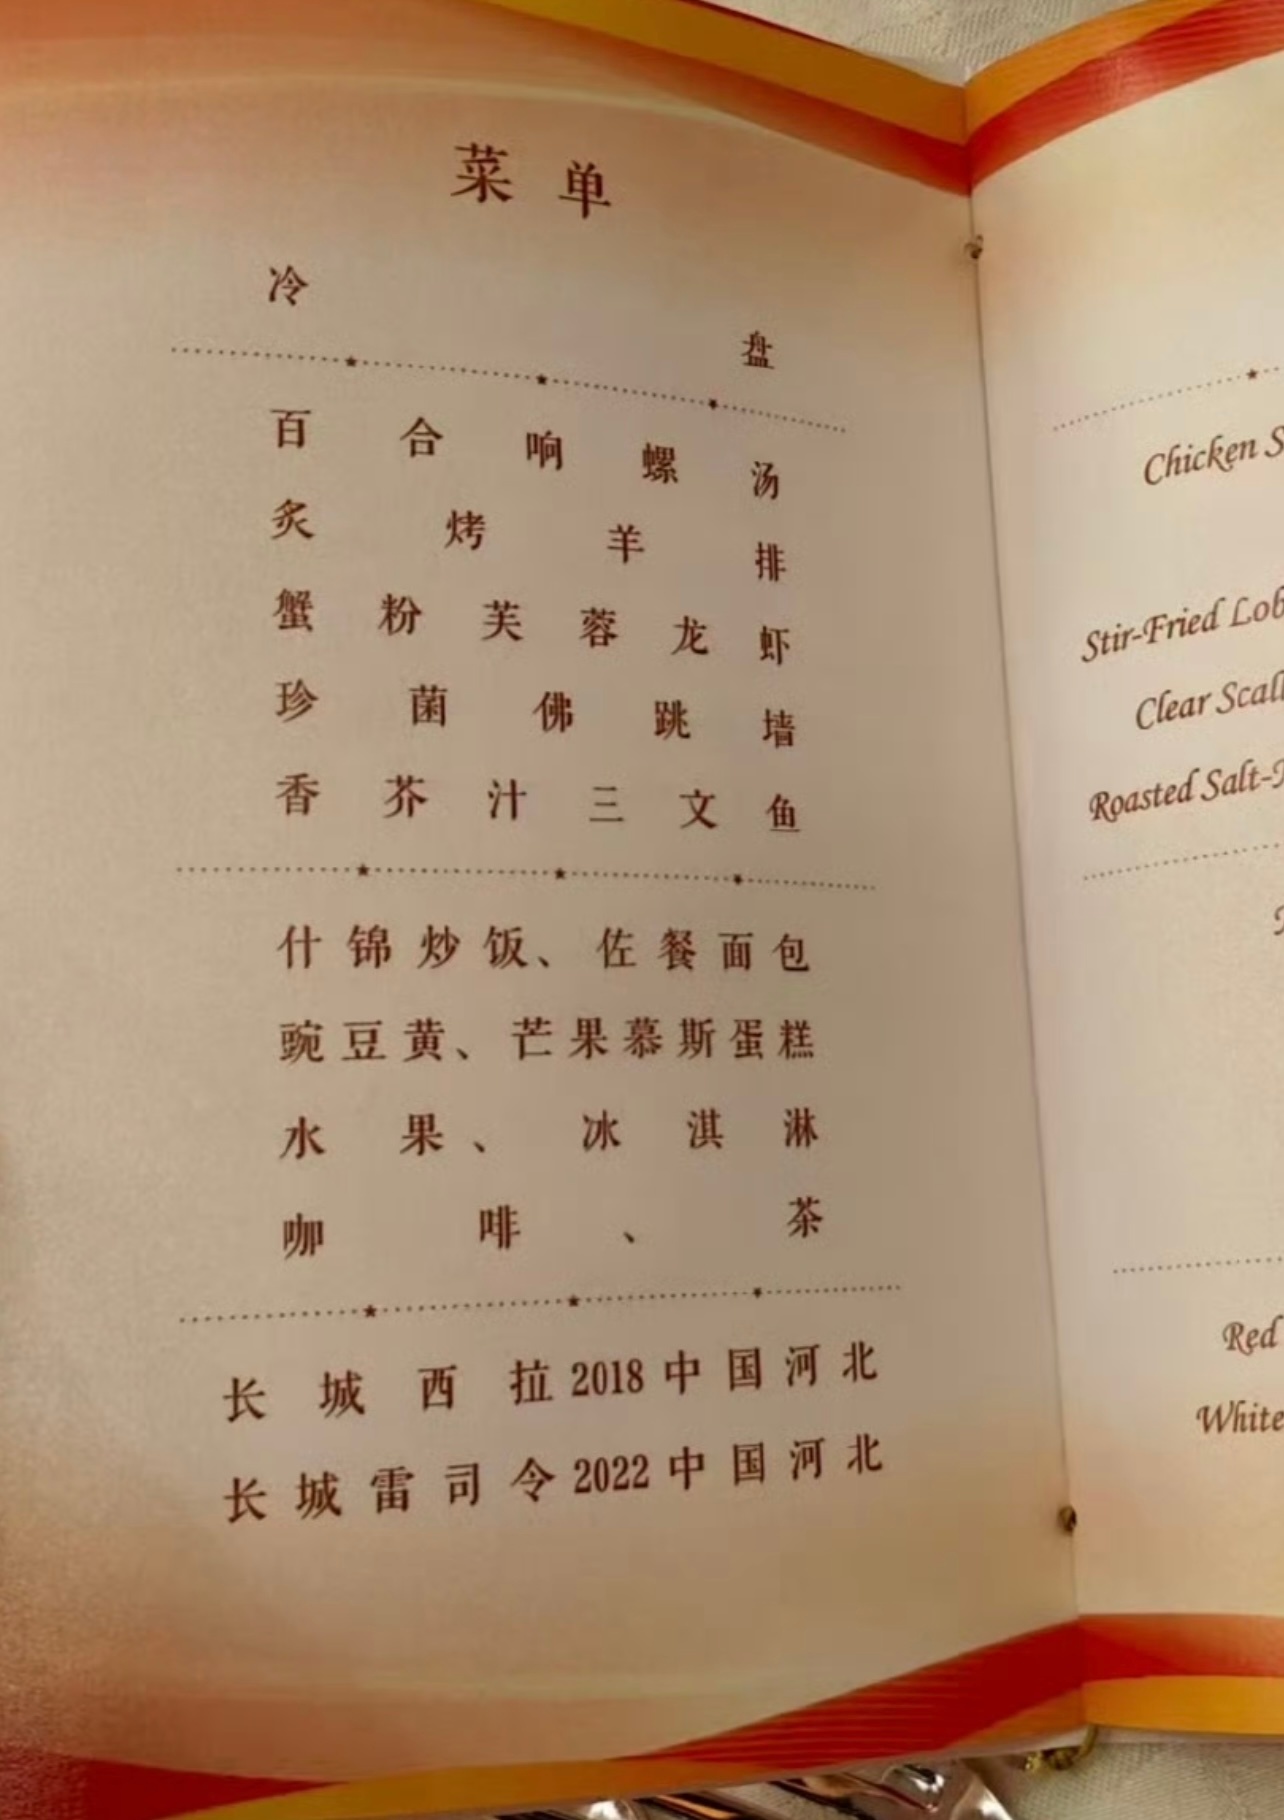 菜单
冷盘
百合响螺汤
炙烤羊排
蟹粉芙蓉龙虾
珍菌佛跳墙
香芥汁三文鱼
什锦炒饭、佐餐面包
豌豆黄、芒果慕斯蛋糕
水果、冰淇淋
咖啡、茶
长城西拉2018中国河北
长城雷司令2022中国河北
Chicken S
Stir-Fried Lob
Clear Scall
Roasted Salt-
Red
White